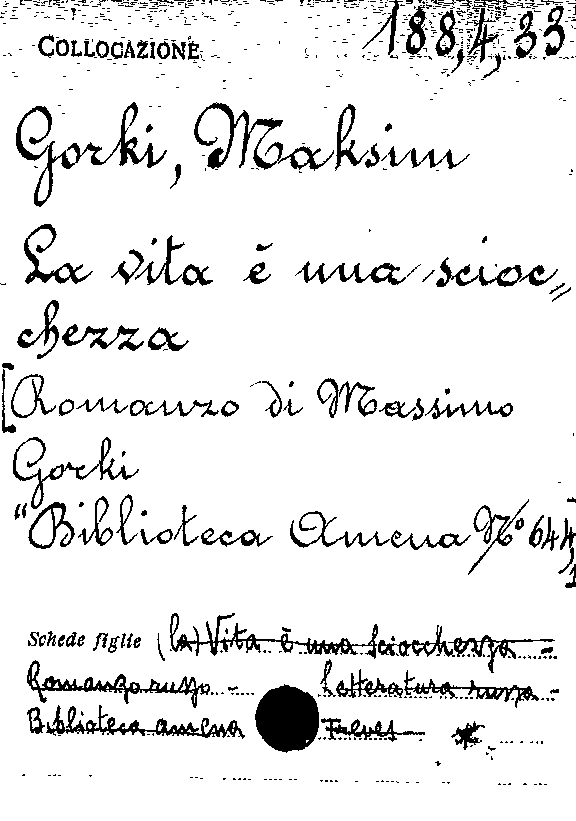 COLLOCAZIONE 188,4,33
Gorki, Maksim
La vita è una scioc=
chezza
[Romanzo di Massimo
Gorki
"Biblioteca Amena N° 644
Schede figlie (La) Vita è una sciocchezza -
Romanzo russo - Letteratura russa -
Biblioteca amena Treves -